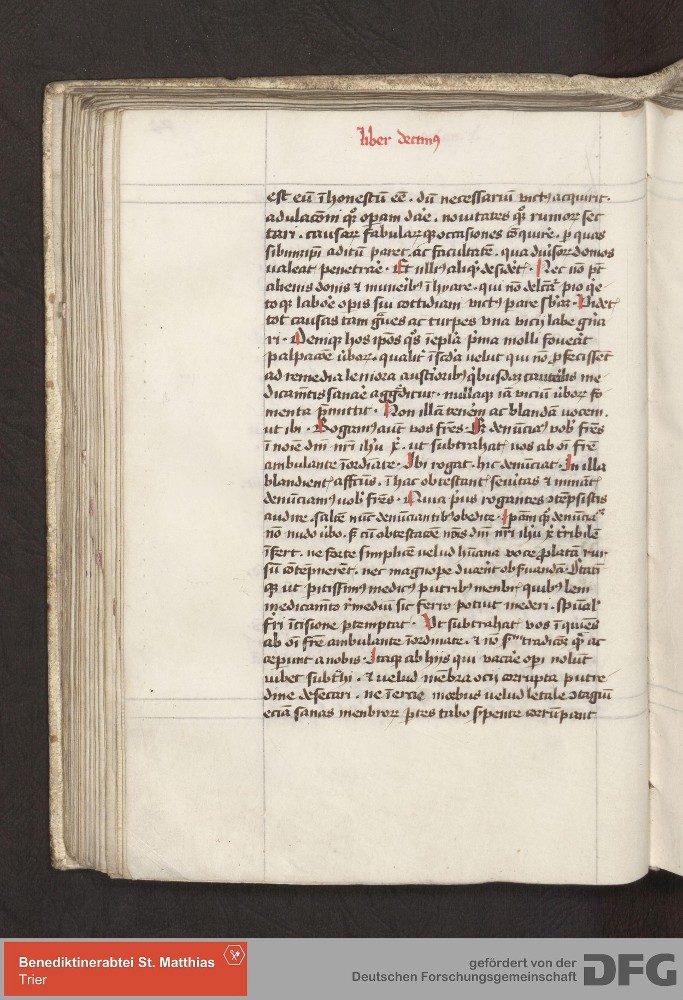 liber decimꝰ
est eū īhonestū eē . dū necessariū victꝰ acquirit .
adulacōni qꝫ opam dare . novitates qꝫ rumorꝝ sec
tari . causarꝝ fabularꝝ qꝫ occasiones cōquirē . ꝑ quas
sibimꝫ aditū paret . ac facultatē . qua diūsorꝝ domos
ualeat penetrare . Nec nō
alienis donis ⁊ muneribꝫ īhiare . qui nō
toqꝫ labore opis sui cottidianū victꝰ pare
tot causas tam graues ac turpes vna vicij labe
ri . Deniqꝫ hos ip̄os qͥs ī epl̄a p̄ma molli fouerat
palpacōe ūborꝝ . qualiter ī sc̄da velut qui nō ꝓfecissent
ad remedia leniora austioribꝫ qͥbusdā me
dicamētis sanare aggreditur . nullaqꝫ iā ūborꝝ fo
menta p̄mittit . Non illā tenerā ac blandā vocem .
ut ibi . Rogamꝰ aut̄ vos fr̄es . Sꝫ denūciamꝰ vob̄ fr̄es
ī noīe dn̄i nr̄i ih̄u xp̄i . ut subtrahatis vos ab oī fr̄e
ambulante īordīate . Ibi rogat . hic denūciat . In illa
blandientis affectus . ī hac obtestantis seueritas ⁊ minātis
denūciamꝰ vob̄ fr̄es . Quia prius rogantes ꝯtēpsistis
audire . saltē nūc denūciantibꝫ obedite . Ipamqꝫ denūciacōem
nō nudo ūbo . sꝫ cū obtestacōe noīs dn̄i nr̄i ih̄u xp̄i t̄ribilē
īfert . ne forte simplicē velud humana voce ꝓlatā rur
sū cōtēpnerent . nec magnope ducerēt obseruandā . Statī
qꝫ ut peritissimꝰ medicꝰ putribꝫ menbris quibꝫ lem
medicamēto remediū sic ferro potiuit mederi . spūali
ī cisione ꝑtemptat . Ut subtrahatis vos īquiens
ab oī fr̄e ambulante īordinate . ⁊ nō scdm tradicōem quā ac
ceperunt a nobis . Itaqꝫ ab hijs qui vacare operi nolunt
iubet subtrahi . ⁊ velud mēbra ocij corrupta putre
dine desecari . ne īercie morbus velud letale ꝯtagiū
eciā sanas menbrorꝝ partes tabo serpente corrūpant
Benediktinerabtei St. Matthias
Trier
gefördert von der
Deutschen Forschungsgemeinschaft
DFG